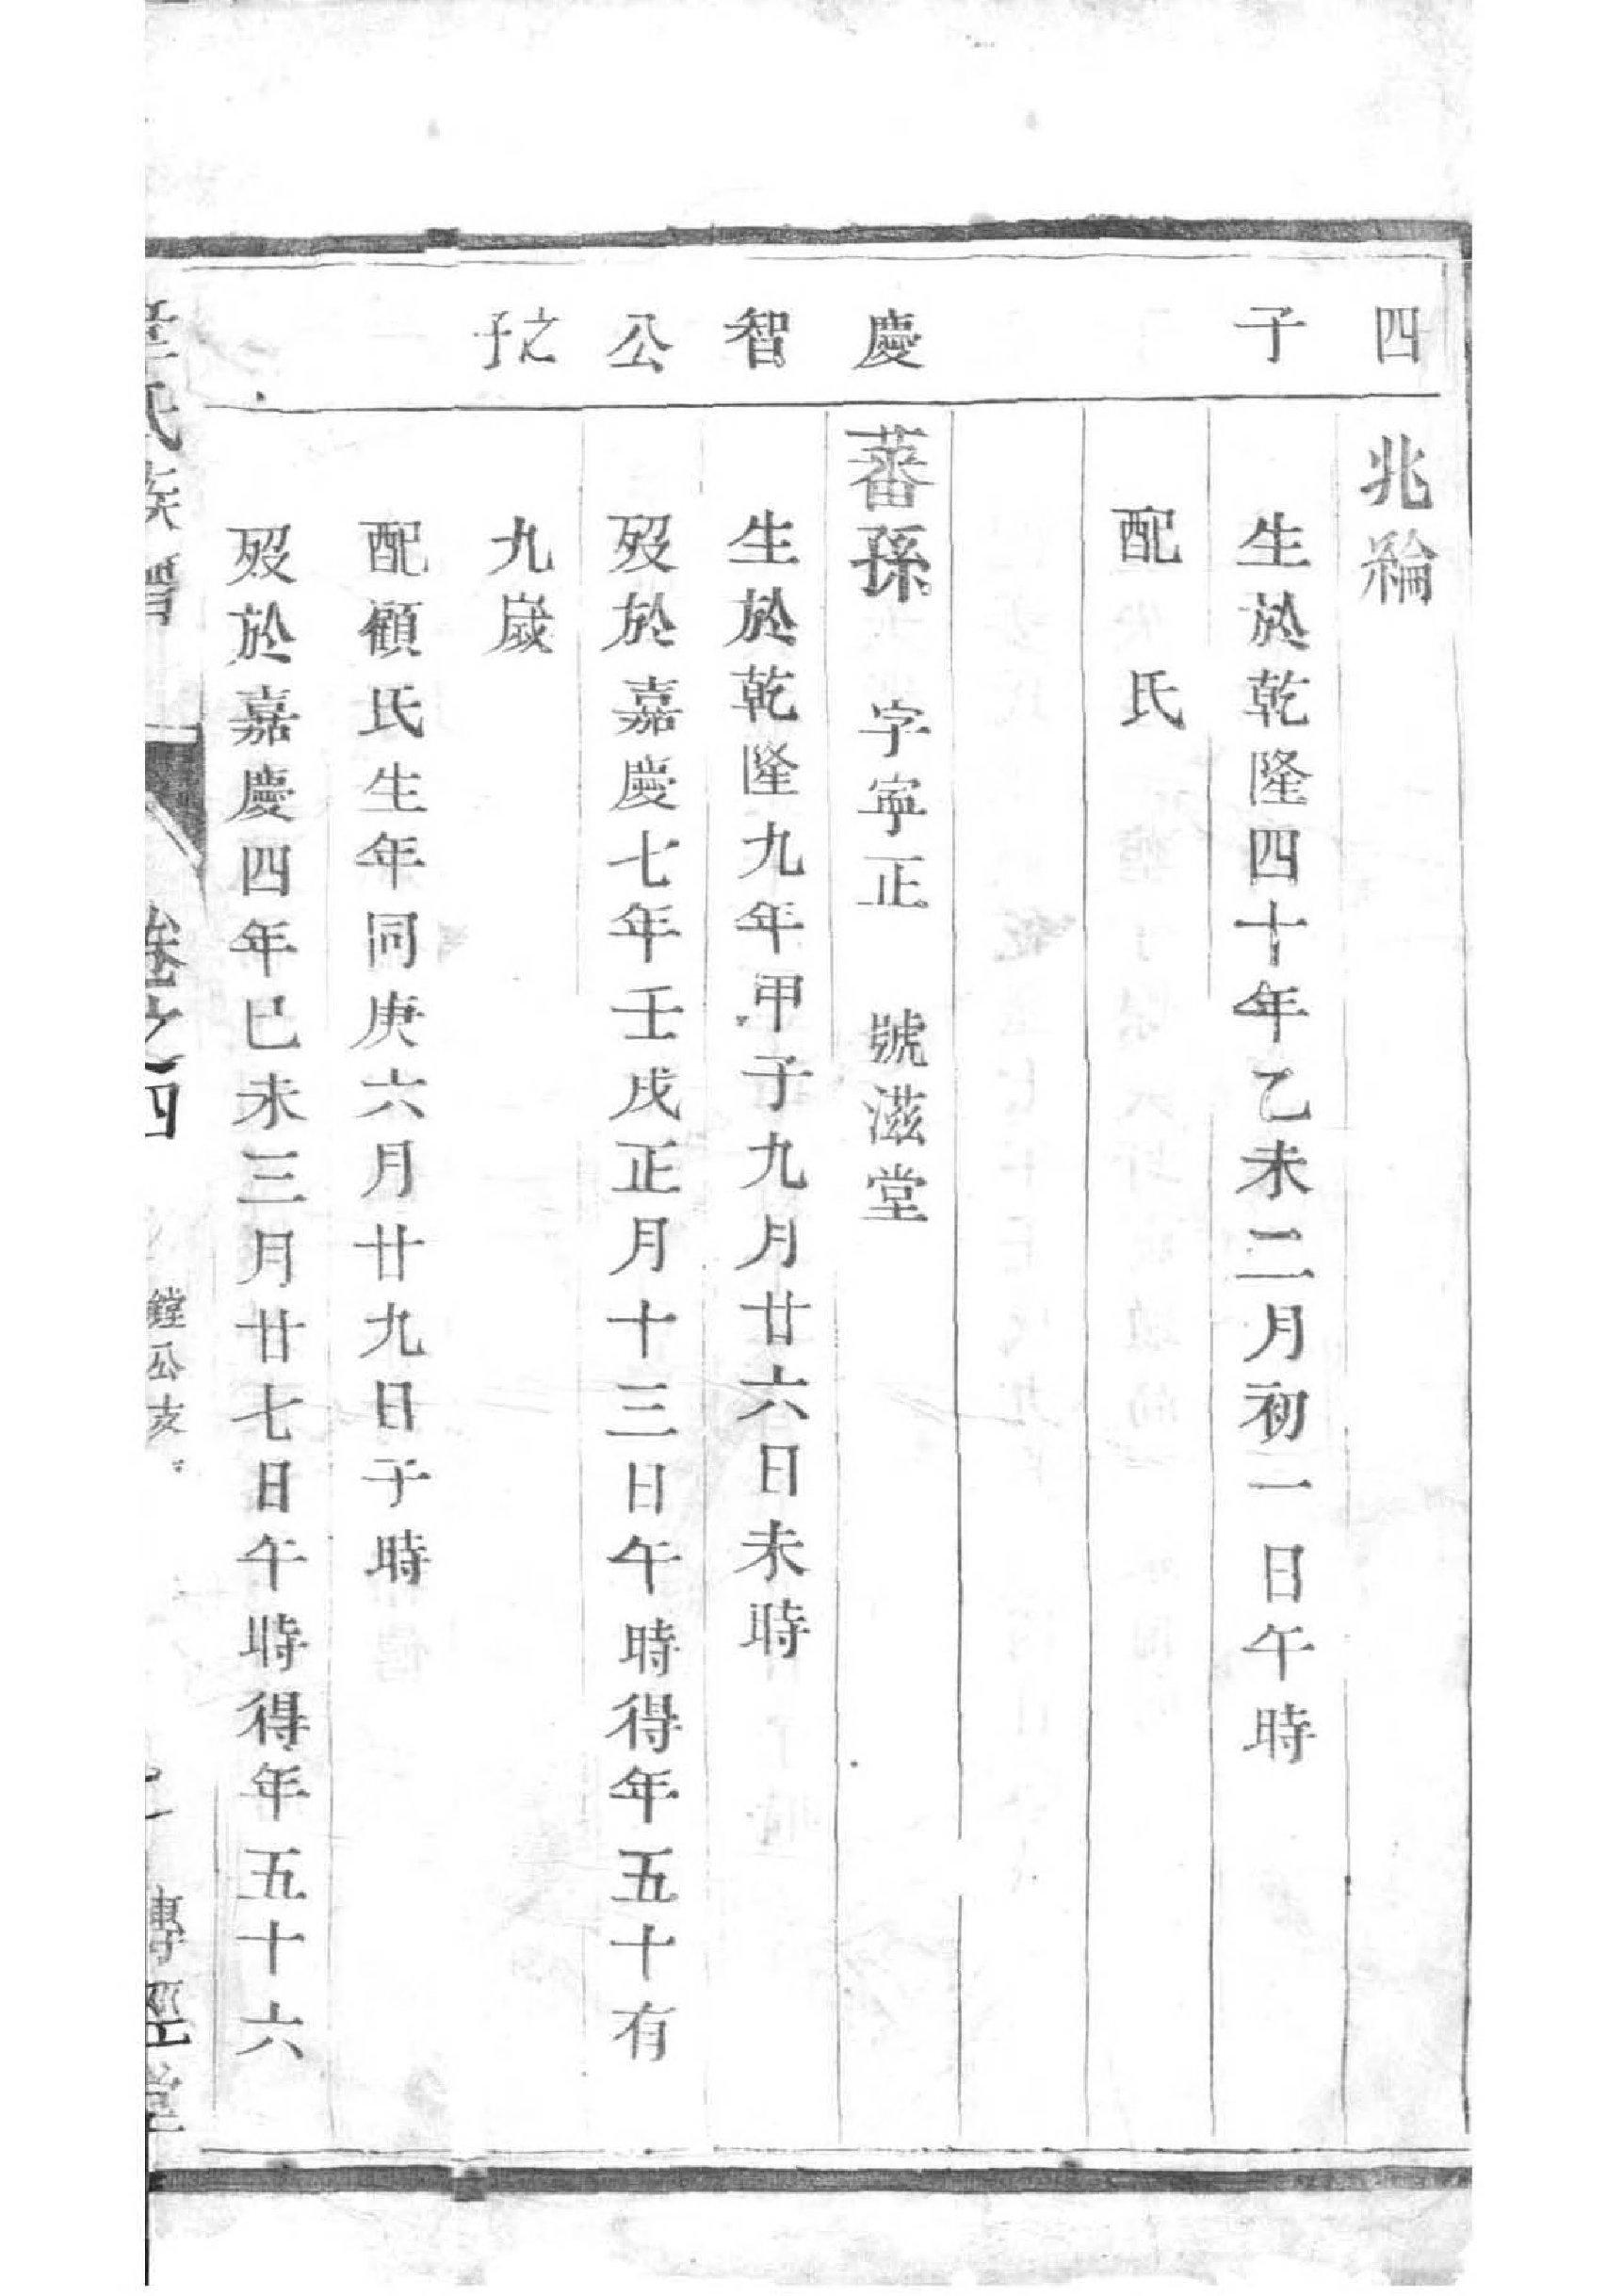 四 兆綸
子 生於乾隆四十年乙未二月初一日午時
配 氏
慶 蕃孫 字寧正 號滋堂
智 生於乾隆九年甲子九月廿六日未時
公 歿於嘉慶七年壬戌正月十三日午時得年五十有
之子 九歲
配顧氏生年同庚六月廿九日子時
歿於嘉慶四年已未三月廿七日午時得年五十六
氏族譜 卷之四 鏜公支 傳經堂